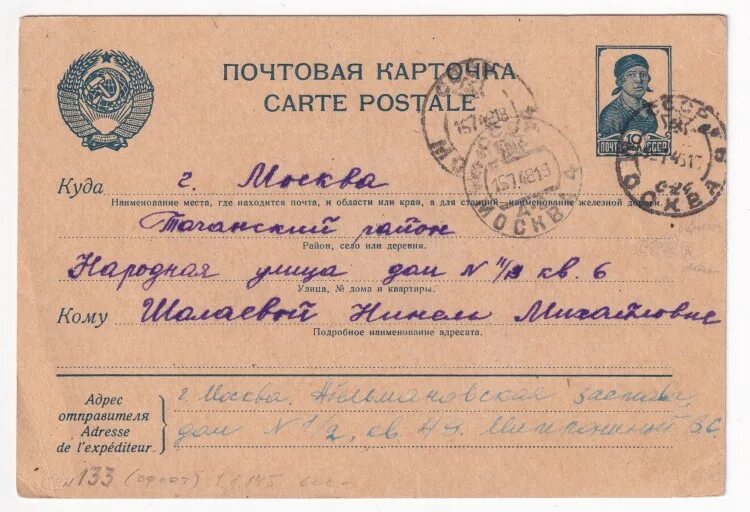 ПОЧТОВАЯ КАРТОЧКА
CARTE POSTALE
ПОЧТА СССР
МОСКВА
1574818
МОСКВА
1574819
МОСКВА
Куда г. Москва
Наименование места, где находится почта, и области или края, а для станций наименование железной дороги.
Таганский район
Район, село или деревня.
Народная улица дом N 11/13 кв. 6
Улица, № дома и квартиры.
Кому Шалаевой Нинель Михайловне
Подробное наименование адресата.
Адрес отправителя
Adresse de l'expéditeur
г. Москва, Абельмановская застава
дом N 1/2, кв
133